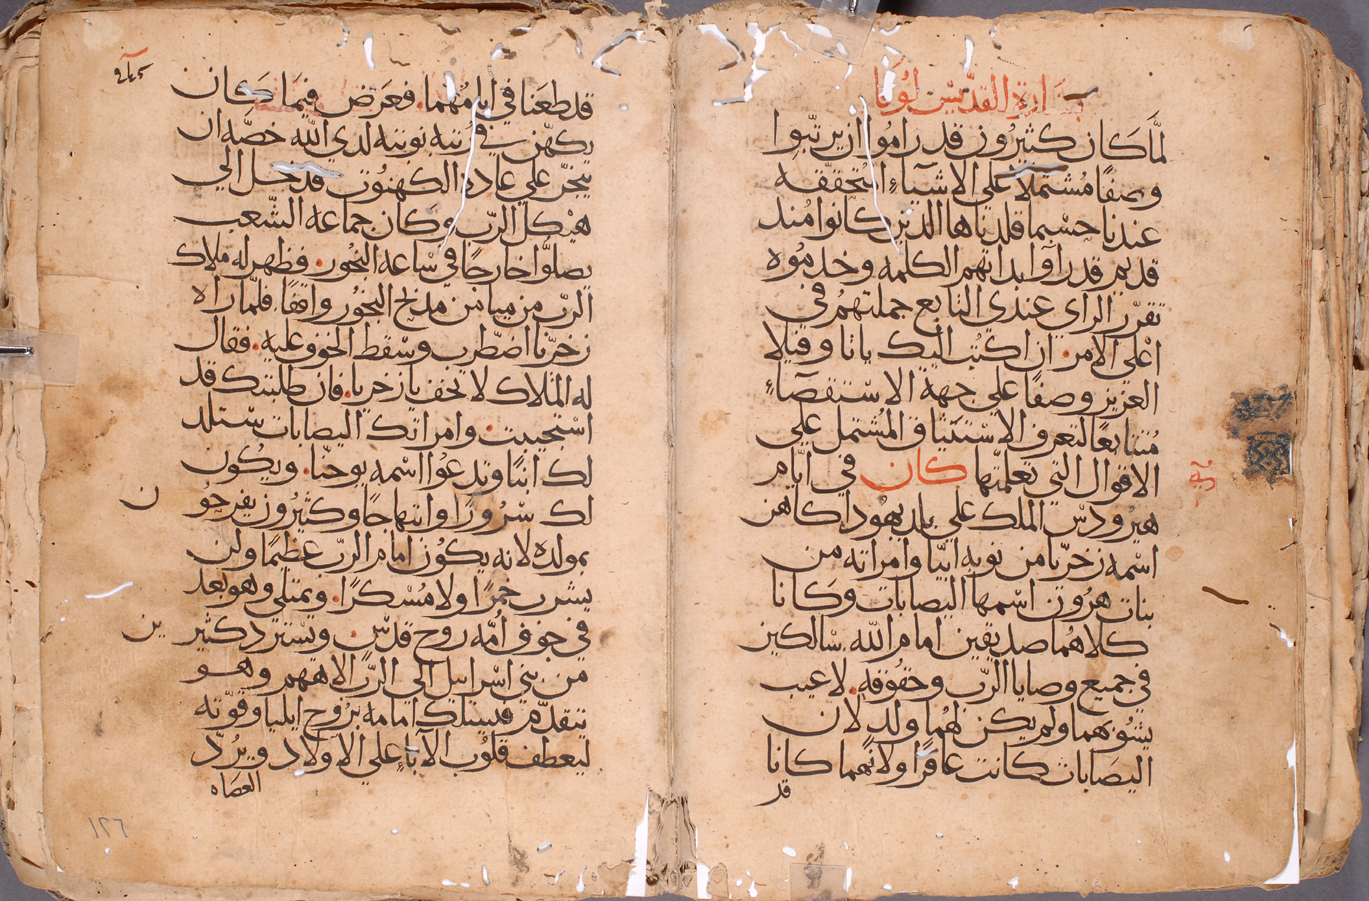 بشارة القديس لوقا
لما كان كثيرون قد راموا ان يرتبوا
وصفا مشتملا على الاشياء المتحققه
عندنا حسبما قلدناها الذين كانوا منذ
قديم قد راوا بدايتهم الكلمه وخدموه
تقرر الراي عندي التابع جملتهم في
اعلى الامر ان اكتب اليك ياتاوفيلا
العزيز وصفا على جهة الاستقصاء
متتابعا لتعرف الاستيثاق المشتمل على
الاقوال التي تعلمتها كان في ايام
هيرودس الملك على بلد يهودا كاهن
اسمه زخريا من نوبه ابيا وامراته من
بنات هرون اسمها اليصابات وكانا
كلاهما صديقين امام الله سالكين
في جميع وصايا الرب وحقوقه لا عيب
يشوبهما ولم يكن لهما ولد لان
اليصابات كانت عاقرا ولانهما كانا
قد
قد طعنا في ايامهما فعرض فيما كان
يكهن في رتبه نوبته لدي الله خصه ان
يبخر علي عادة الكهنوت فدخل الي
هيكل الرب وكان جماعه الشعب
يصلوا خارجا في ساعه البخور فظهر له ملاك
الرب من ميامن مذبح البخور واقفا فلما راه
زخريا اضطرب وسقط الخوف عليه فقال
له الملاك لا تخف يا زخريا فان طلبتك قد
استجيبت وامراتك اليصابات ستلد
لك ابنا وتدعوا اسمه يوحنا ويكون
لك سرورا وابتهاجا وكثيرون يفرحو
ن
بمولده لانه يكون امام الرب عظيما ولن
يشرب خمرا ولا مسكرا ويمتلي وهو بعد
في جوف امه روح قدس ويسترد كثير
ين
من بني اسرائيل الى الرب الاههم وهو
يتقدم فيسلك امامه بروح ايليا وقوته
ليعطف قلوب الآباء علي الاولاد ويرد
العصاه
١٢٦